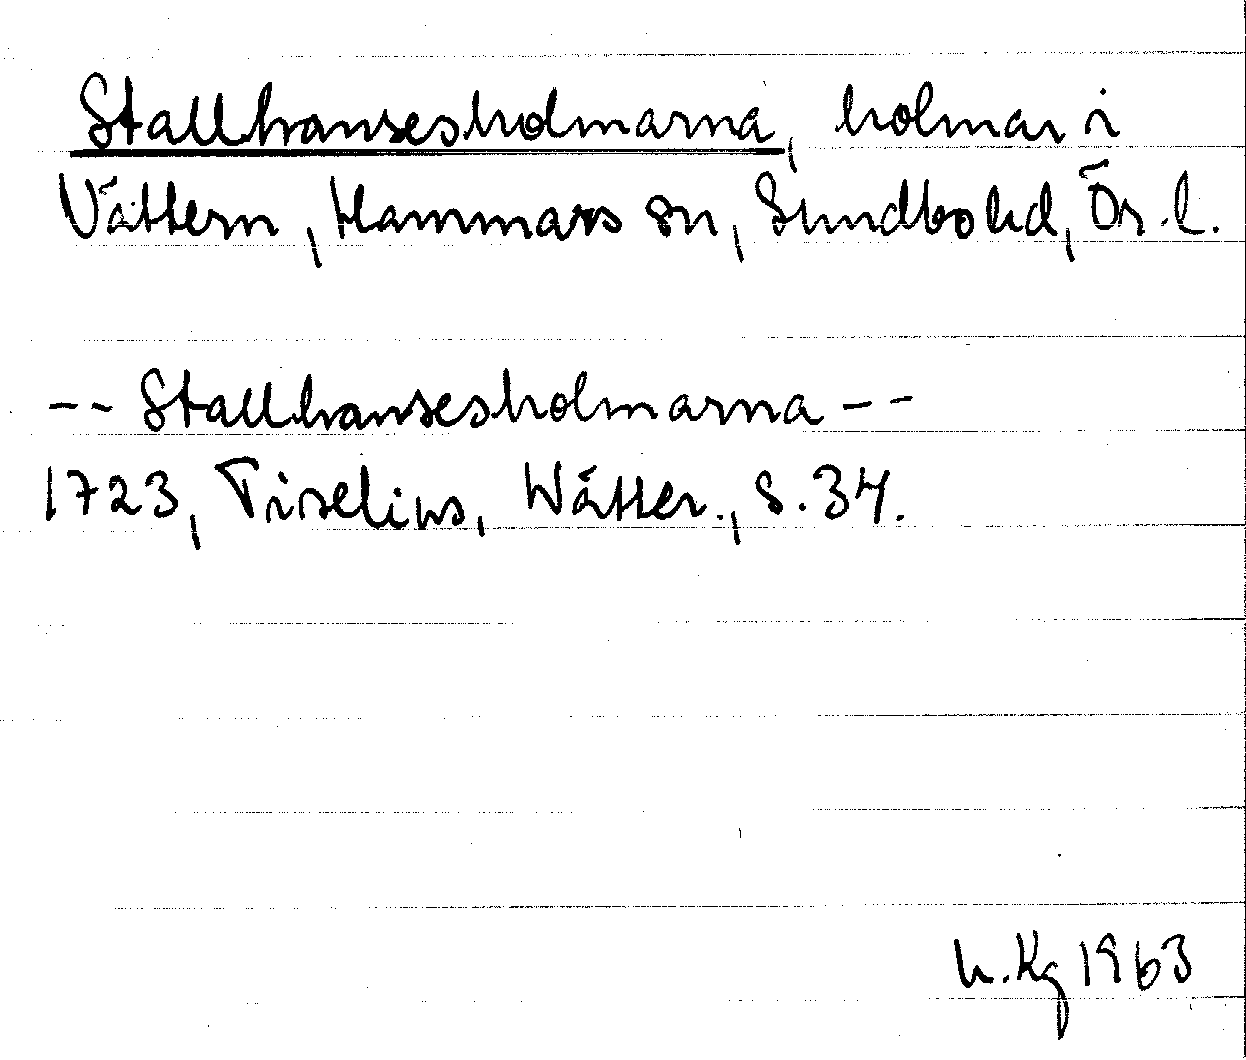 Stallhansesholmarna, holmar i
Vättern, Hammars sn, Sundbo hd, Ör. l.
-- Stallhansesholmarna --
1723, Tiselius, Wätter., s. 34.
h. Kg 1963